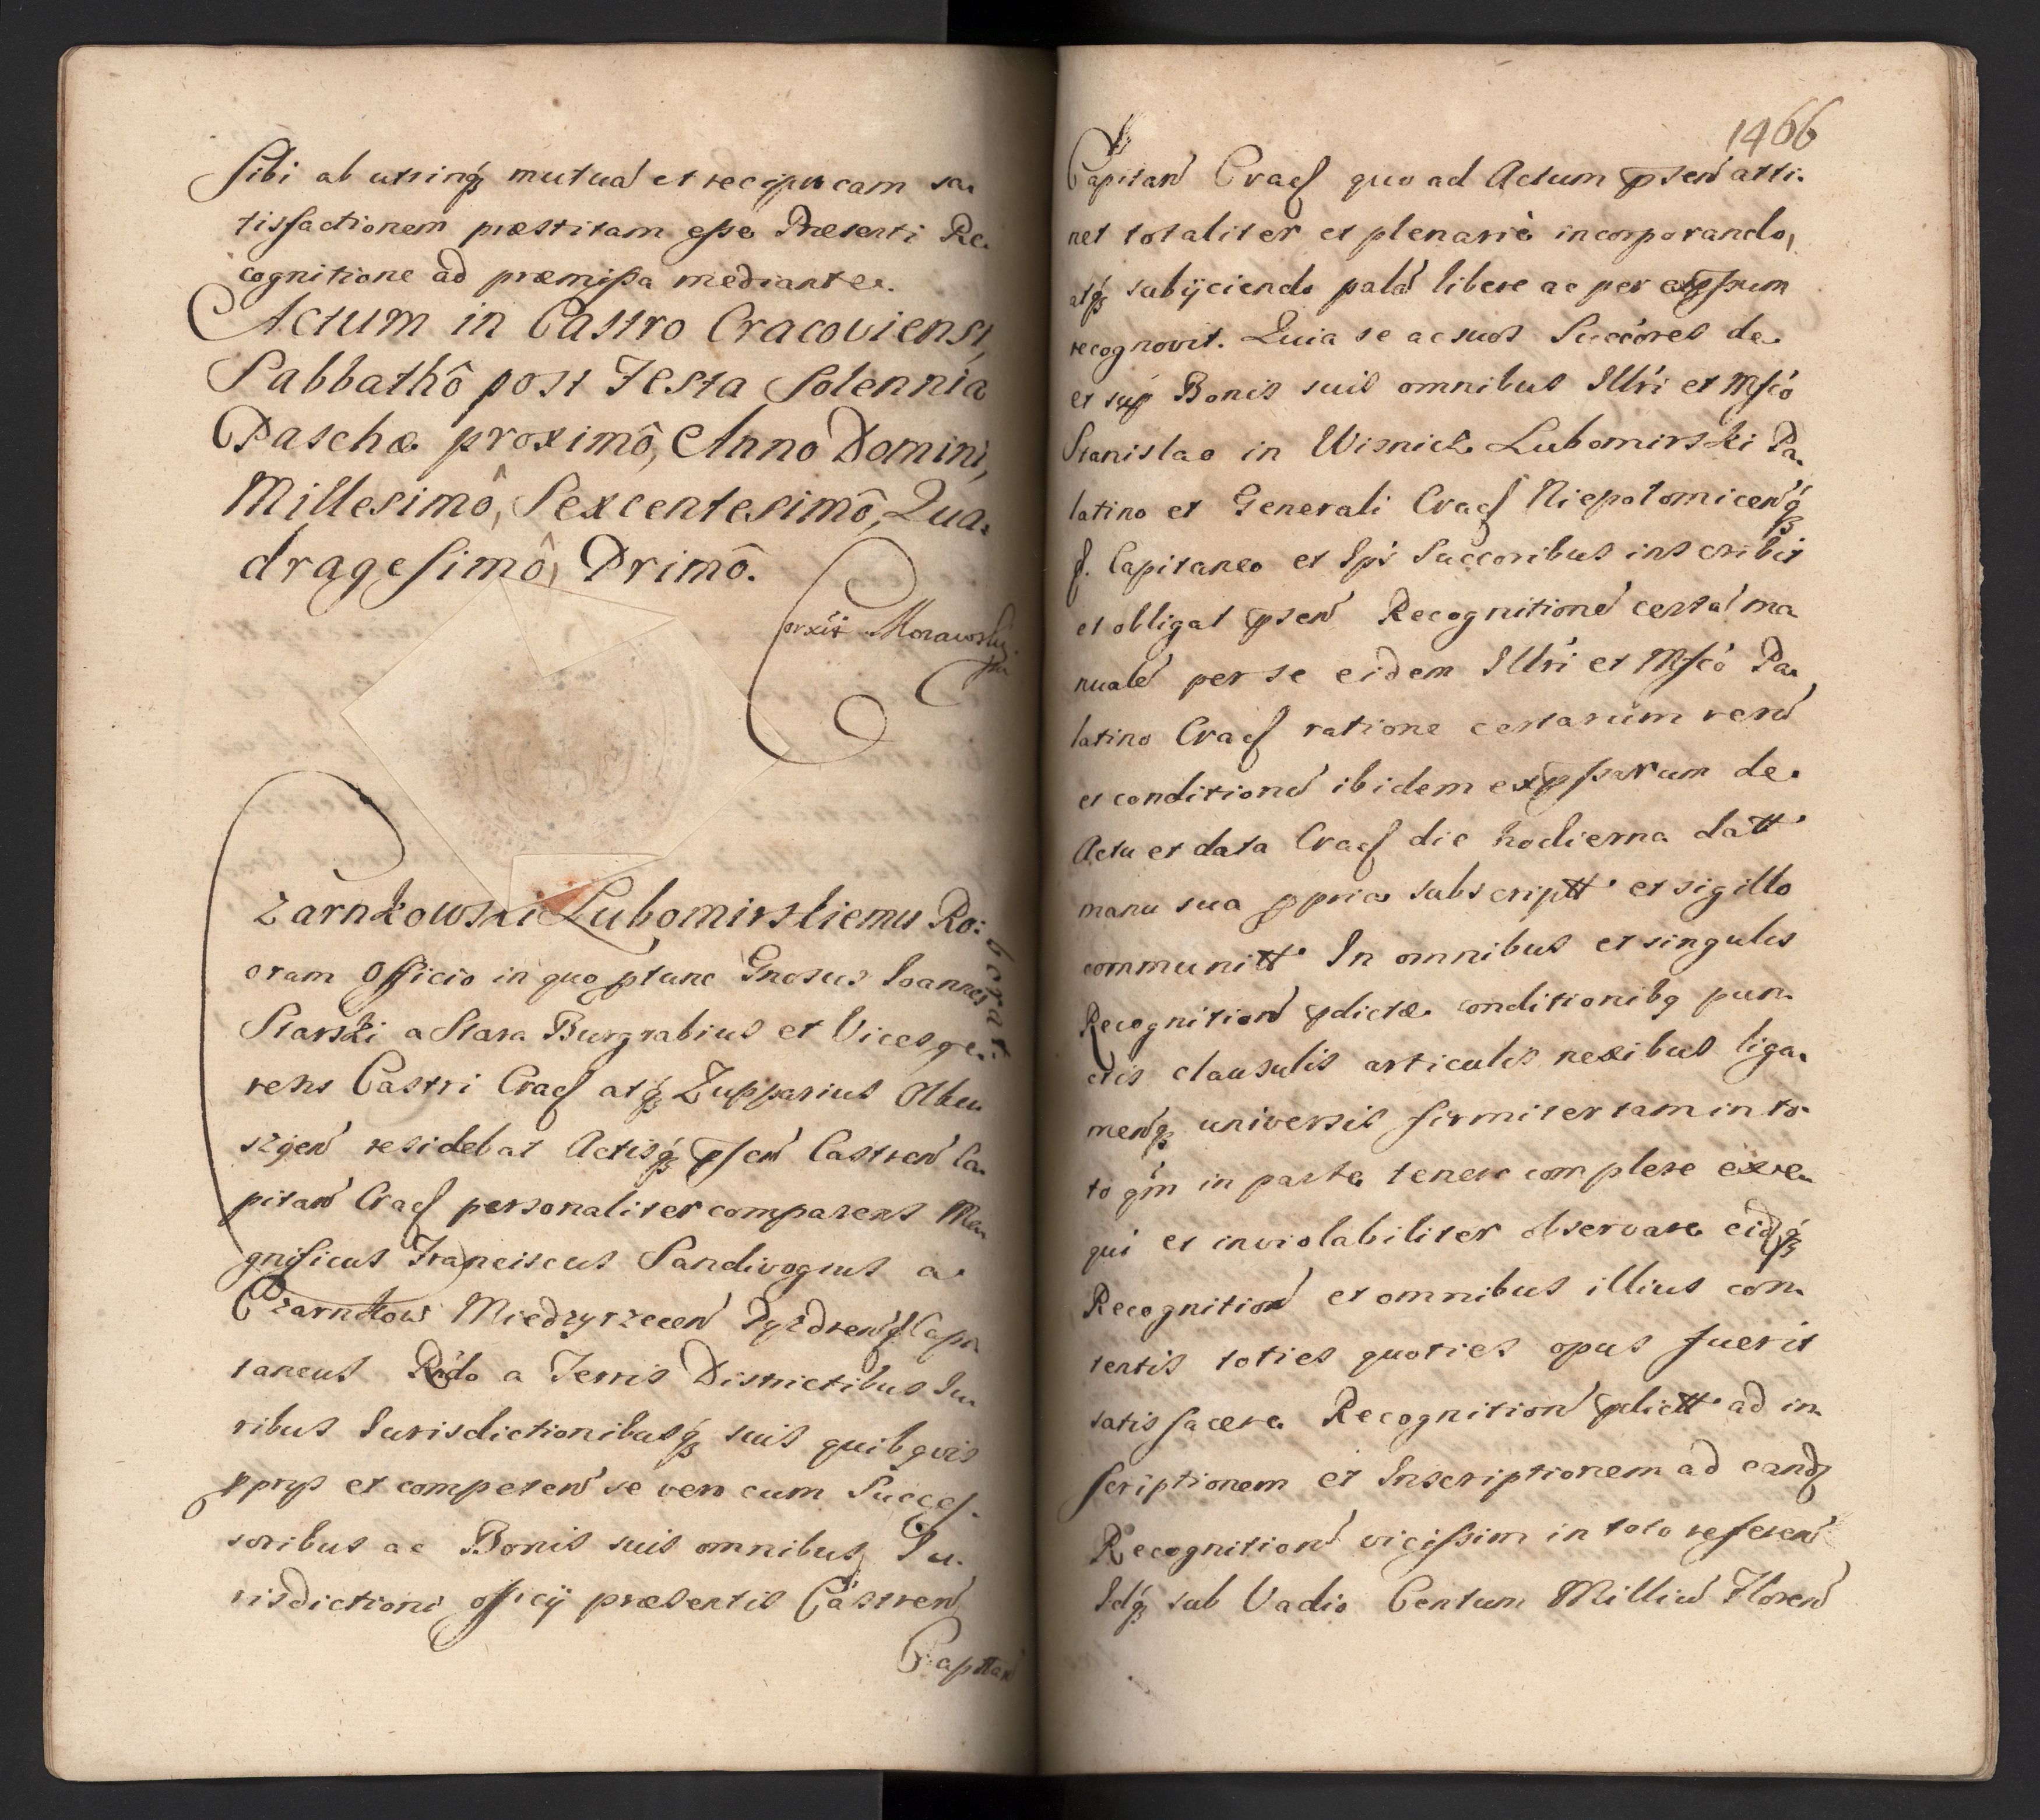 sibi ab utrinq̃ mutuã et reciprocam sa-
tisfactionem præstitam esse Præsenti Re-
cognitione ad præmissa mediante.
Actum in Castro Cracoviensi,
Sabbathô post Festa Solennia
Paschæ proximô, Anno Domini,
Millesimô, Sexcentesimô, Qua-
dragesimô, Primô.
Morawsky
Czarnkowski Lubomirskiemu Ro:
borat
oram Officio in quo ptunc Gnosus Ioannes
Starski a Stara Burgrabius et Vicesge-
rens Castri Cracſ atq̃ Zupparius Olku
szgen̄ residebat Actisq̃ pſen̄ Castren̄ Ca-
pitan̄ Cracſ personaliter comparens Ma-
gnificus Franciscus Sandivogius a
Czarnkow Miedzyrzecen̄ Pyzdren̄q̃ Capi
taneus Rndo a Terris Districtibus Iu-
ribus Iurisdictionibusq̃ suis quibqvis
pprys et competen̄ se vero cum Succeſ-
soribus ac Bonis suis omnibus Iu-
risdictioni officÿ præsentis Castren̄
Capitan̄
1466
Capitan̄ Cracſ quo ad Actum psen̄ atti-
net totaliter et plenariè incorporando,
atq̃ subÿciendo palā libere ac per expſsum
recognovit. Quia se ac suos Succores de
et sup Bonis suis omnibus Illri et Mſco
Stanislao in Wisnicz Lubomirski Pa-
latino et Generali Cracſ Niepolomicen̄q̃
ſ. Capitaneo et Ipś Succoribus inscribit
et obligat psen̄ Recognitionē certā ma
nualē per se eidem Illri et Mſco Pa-
latino Cracſ ratione certarum rerū
et conditionū ibidem expſsarum de
Actu et data Cracſ die hodierna datt
manu sua ppria subscriptt et sigillo
communitt In omnibus et singulis
Recognition̄ pdictæ conditionibq pun-
ctis clausulis articulis nexibus liga-
menq̃ universis firmiter tam in to-
to qm̄ in parte tenere complere exe-
qui et inviolabiliter observare eidq̃
Recognition̄ et omnibus illius con-
tentis toties quoties opus fuerit
satisfacere Recognition̄ pdictt ad in-
scriptionem et Inscriptionem ad eandꝫ
Recognition̄ viciſsim in toto referen̄
Idq̃ sub Vadio Centum Milliū Floren̄